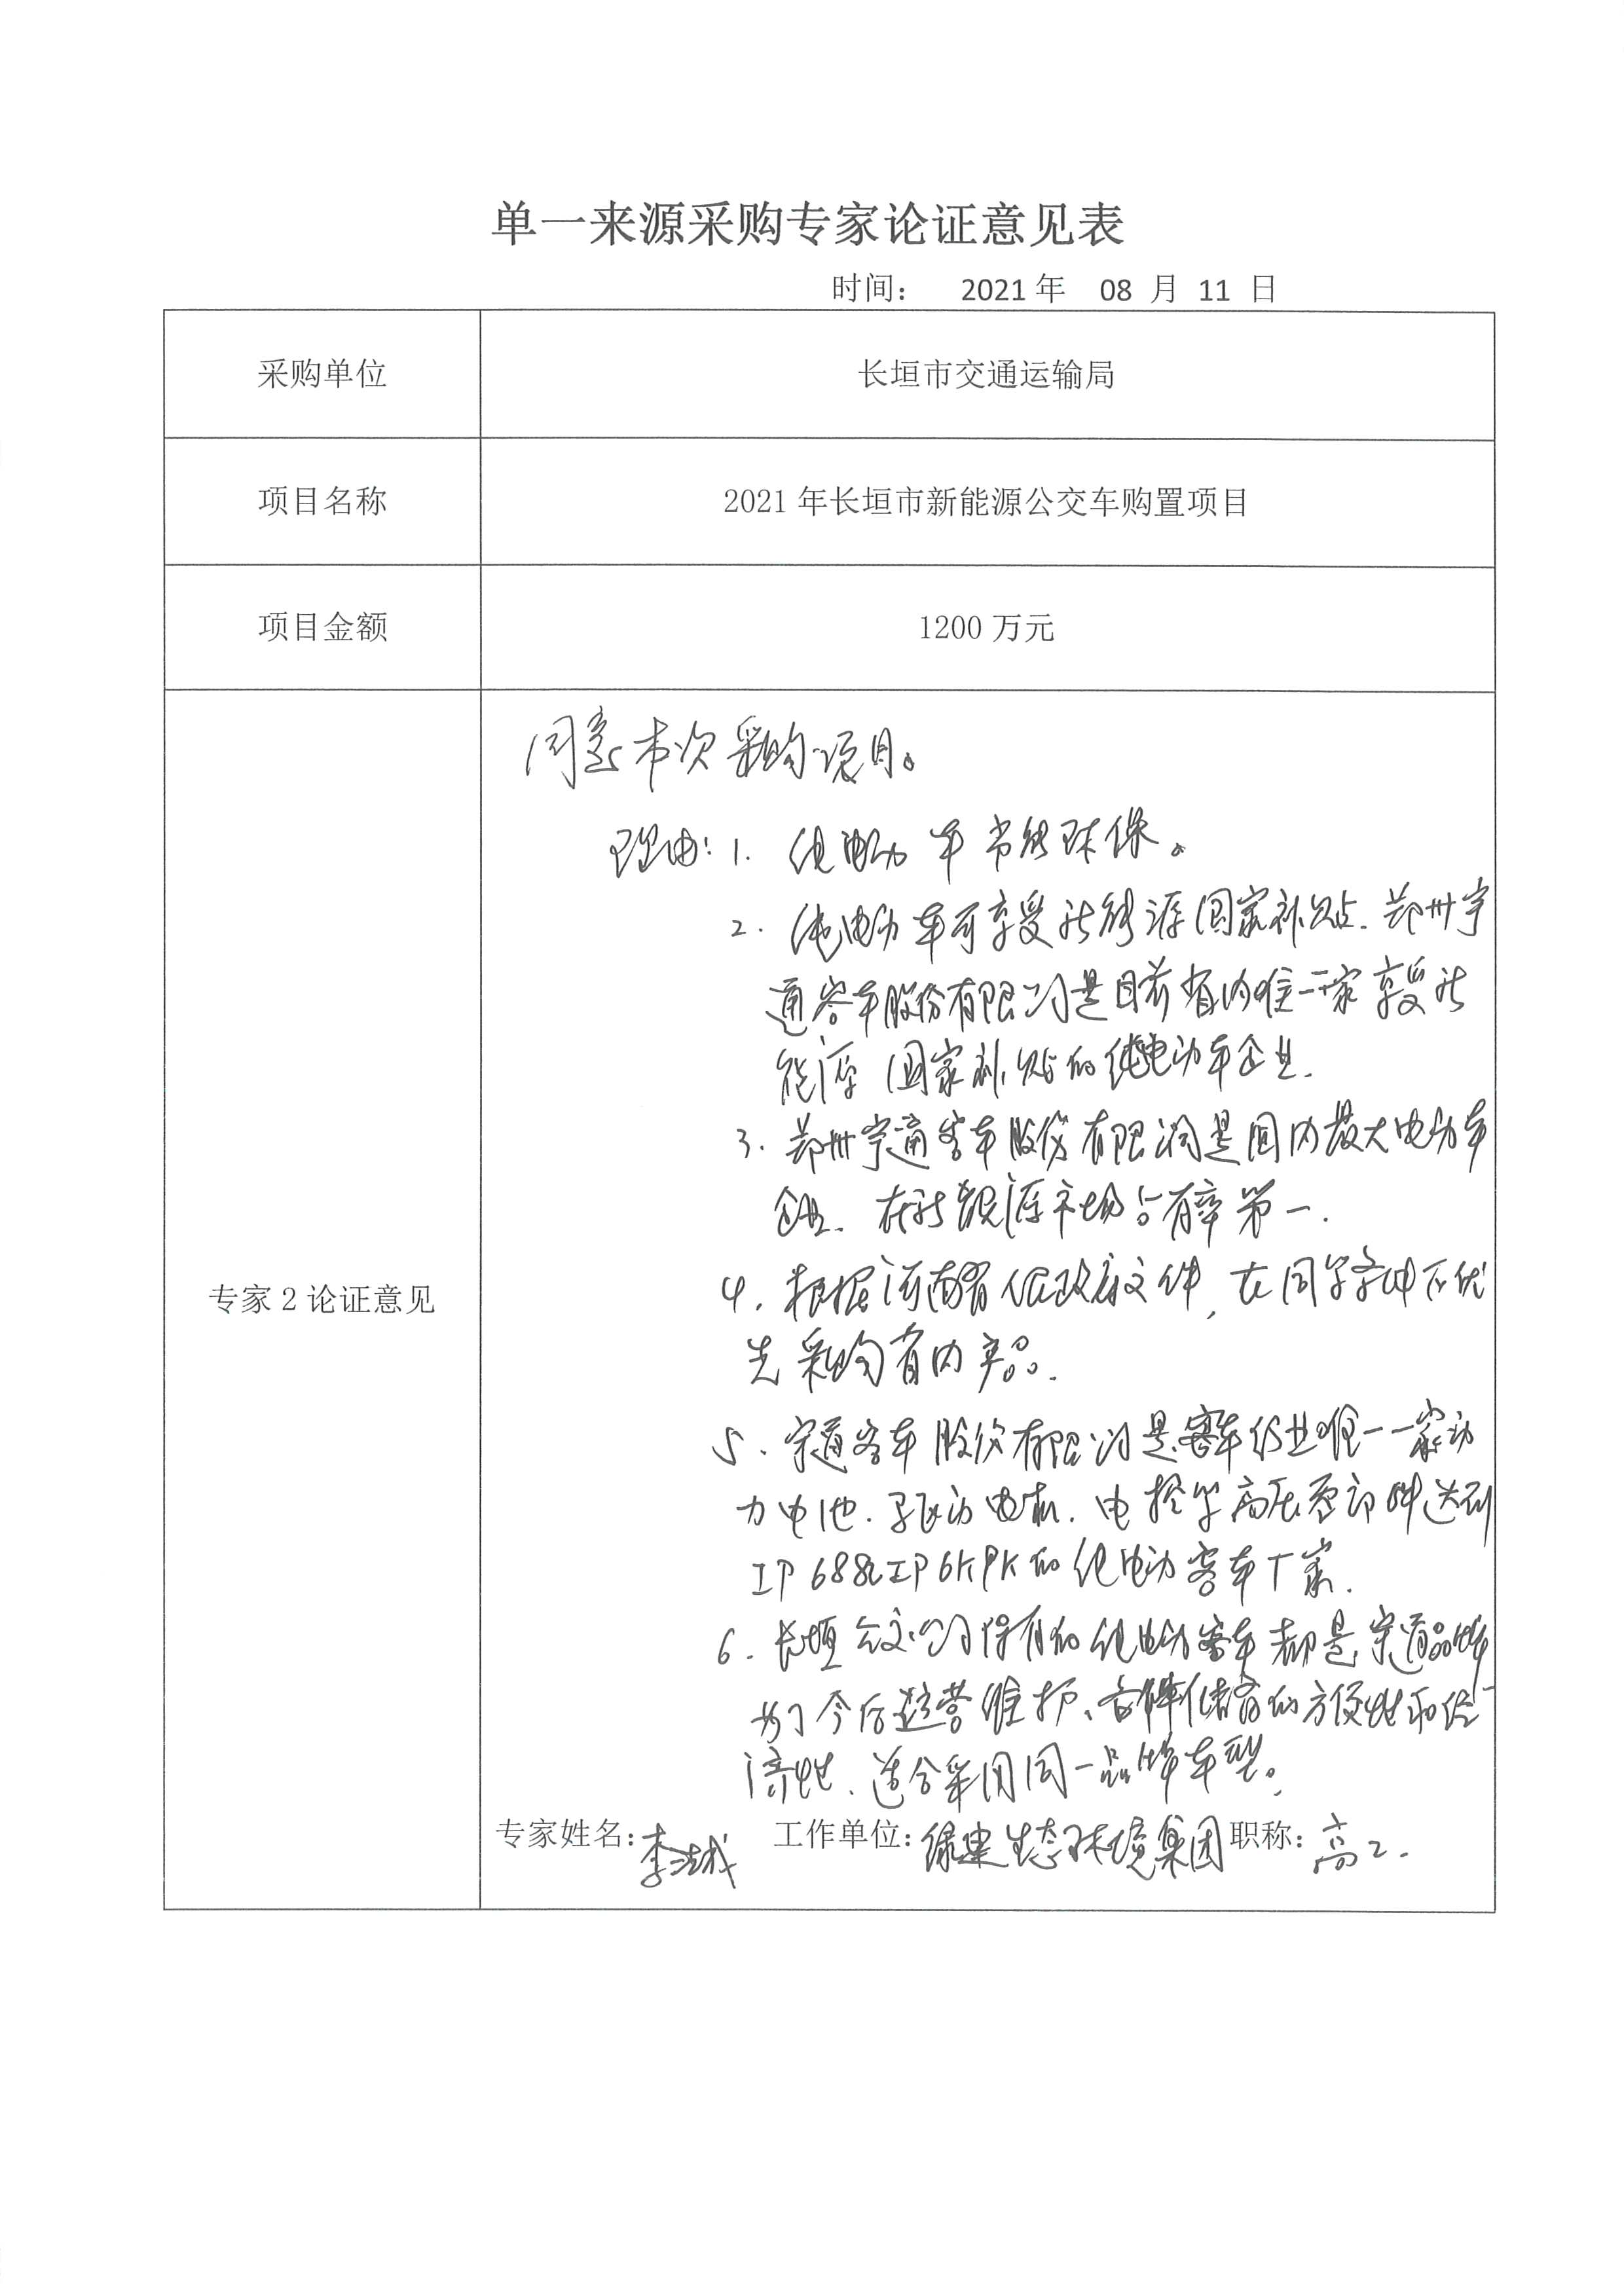 单一来源采购专家论证意见表
时间： 2021年 08 月 11 日
采购单位
长垣市交通运输局
项目名称
2021年长垣市新能源公交车购置项目
项目金额
1200万元
专家2论证意见
同意本次采购项目。
理由：1. 纯电动车节能环保。
2. 纯电动车可享受新能源国家补贴．郑州宇
通客车股份有限公司是目前省内唯一一家享受新
能源国家补贴的纯电动车企业．
3. 郑州宇通客车股份有限公司是国内最大电动车
企业．在新能源市场占有率第一．
4. 根据河南省人民政府文件，在同等条件下优
先采购省内产品．
5. 宇通客车股份有限公司是客车行业唯一一家动
力电池．驱动电机．电控等高压零部件达到
IP68和IP6K9K的纯电动客车厂家．
6. 长垣公交公司保有的纯电动客车都是宇通品牌
为了今后运营维护、备件储备的方便性和经
济性、适合采用同一品牌车型。
专家姓名：李 工作单位：绿建生态环境集团 职称：高工．